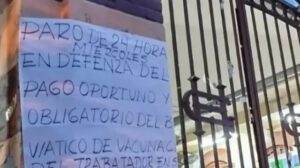 PARO DE 24 HORA
MIERCOLES
EN DEFENZA DEL
PAGO OPORTUNO Y
OBLIGATORIO DEL B
VIATICO DE VACUNAC
DEL TRABAJADOR EN S